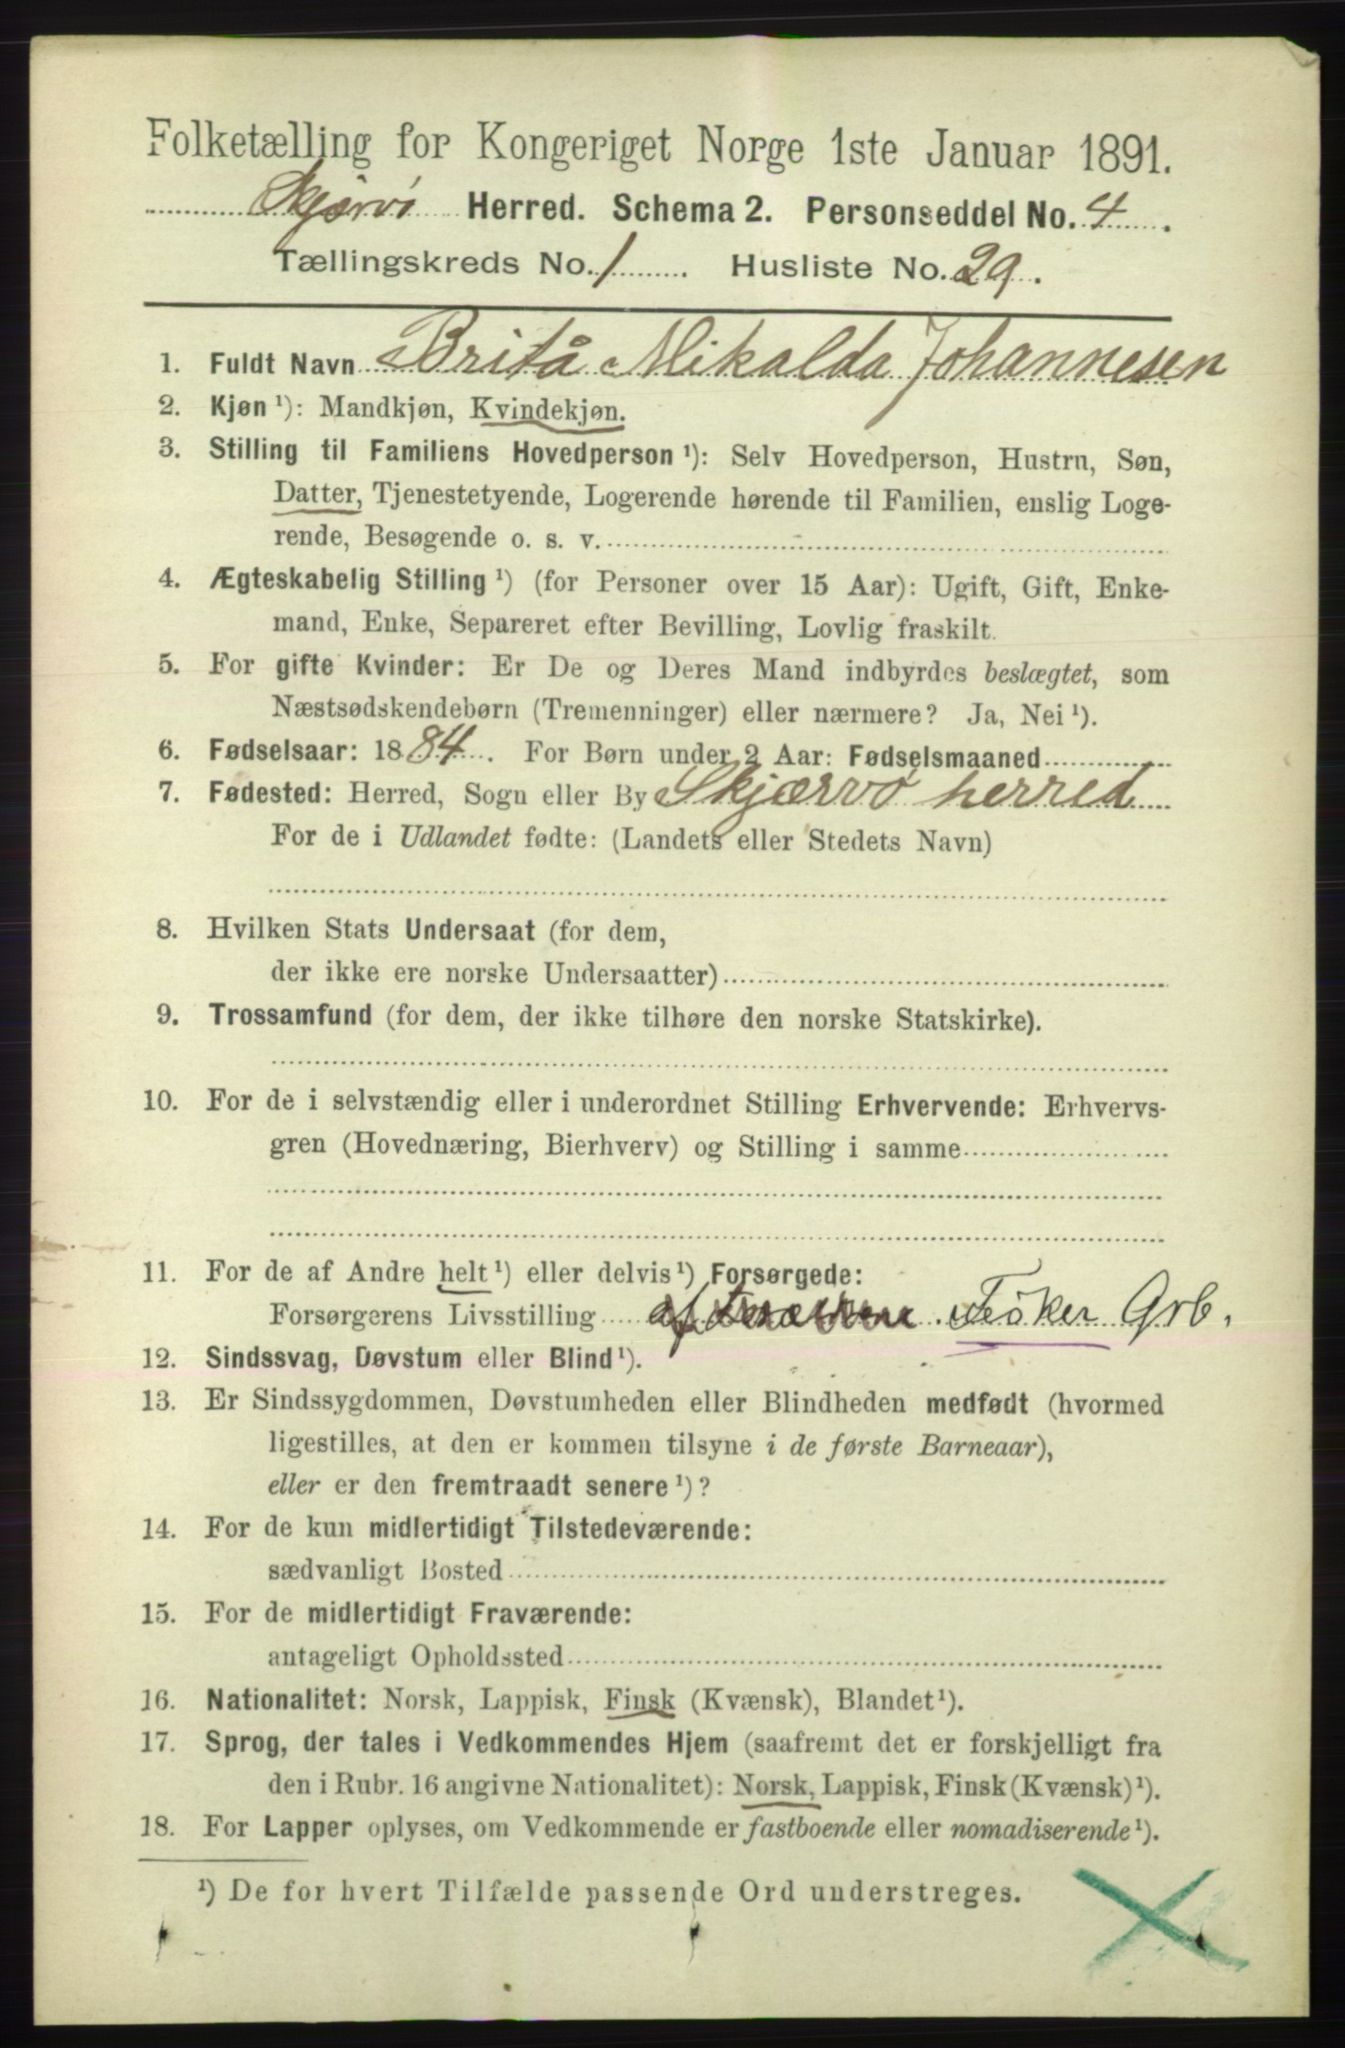 Folketælling for Kongeriget Norge 1ste Januar 1891.
Skjervø Herred. Schema 2. Personseddel No. 4.
Tællingskreds No. 1. Husliste No. 29.
1. Fuldt Navn Britå Mikalda Johannesen
2. Kjøn ¹): Mandkjøn, Kvindekjøn.
3. Stilling til Familiens Hovedperson ¹): Selv Hovedperson, Hustru, Søn,
Datter, Tjenestetyende, Logerende hørende til Familien, enslig Loge-
rende, Besøgende o. s. v.
4. Ægteskabelig Stilling ¹) (for Personer over 15 Aar): Ugift, Gift, Enke-
mand, Enke, Separeret efter Bevilling, Lovlig fraskilt.
5. For gifte Kvinder: Er De og Deres Mand indbyrdes beslægtet, som
Næstsødskendebørn (Tremenninger) eller nærmere? Ja, Nei ¹).
6. Fødselsaar: 1884. For Børn under 2 Aar: Fødselsmaaned
7. Fødested: Herred, Sogn eller By Skjærvø herred
For de i Udlandet fødte: (Landets eller Stedets Navn)
8. Hvilken Stats Undersaat (for dem,
der ikke ere norske Undersaatter)
9. Trossamfund (for dem, der ikke tilhøre den norske Statskirke).
10. For de i selvstændig eller i underordnet Stilling Erhvervende: Erhvervs-
gren (Hovednæring, Bierhverv) og Stilling i samme
11. For de af Andre helt ¹) eller delvis ¹) Forsørgede:
Forsørgerens Livsstilling af Fisker Grb.
12. Sindssvag, Døvstum eller Blind ¹).
13. Er Sindssygdommen, Døvstumheden eller Blindheden medfødt (hvormed
ligestilles, at den er kommen tilsyne i de første Barneaar),
eller er den fremtraadt senere ¹)?
14. For de kun midlertidigt Tilstedeværende:
sædvanligt Bosted
15. For de midlertidigt Fraværende:
antageligt Opholdssted
16. Nationalitet: Norsk, Lappisk, Finsk (Kvænsk), Blandet ¹).
17. Sprog, der tales i Vedkommendes Hjem (saafremt det er forskjelligt fra
den i Rubr. 16 angivne Nationalitet): Norsk, Lappisk, Finsk (Kvænsk) ¹).
18. For Lapper oplyses, om Vedkommende er fastboende eller nomadiserende ¹).
¹) De for hvert Tilfælde passende Ord understreges.